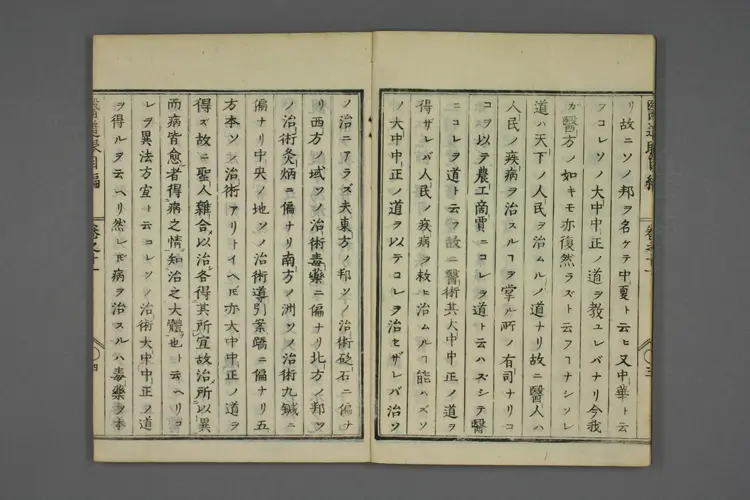 リ故ニソノ邦ヲ名ケテ中夏ト云ヒ又中華ト云
フコレソノ大中中正ノ道ヲ教ユレバナリ今我
カ醫方ノ如キモ亦復然ラズト云フヿナシソレ
道ハ天下ノ人民ヲ治ムルノ道ナリ故ニ醫人ハ
人民ノ疾病ヲ治スルヿヲ掌ル所ノ有司ナリコ
コヲ以テ農工商賈ニコレヲ道ト云ハズシテ醫
ニコレヲ道ト云フ故ニ醫術其大中中正ノ道ヲ
得ザレバ人民ノ疾病ヲ救ヒ治ムルヿ能ハズソ
ノ大中中正ノ道ヲ以テコレヲ治セザレバ治ソ
醫道
卷之十一
三
ノ治ニアラズ夫東方ノ邦ソノ治術砭石ニ偏ナ
リ西方ノ域ソノ治術毒藥ニ偏ナリ北方ノ邦ソ
ノ治術灸焫ニ偏ナリ南方ノ洲ソノ治術九鍼ニ
偏ナリ中央ノ地ソノ治術導引案蹻ニ偏ナリ五
方本ソノ治術アリトイヘ𪜈亦大中中正ノ道ヲ
得ズ故ニ聖人雜合以治各得其所宜故治所以異
而病皆愈者得病之情知治之大體也ト云ヘリコ
レヲ異法方宜ト云コレソノ治術大中中正ノ道
ヲ得ルヲ云ヘリ然レ𪜈病ヲ治スルハ毒藥ヲ本
醫道眼目編
卷之十一
四